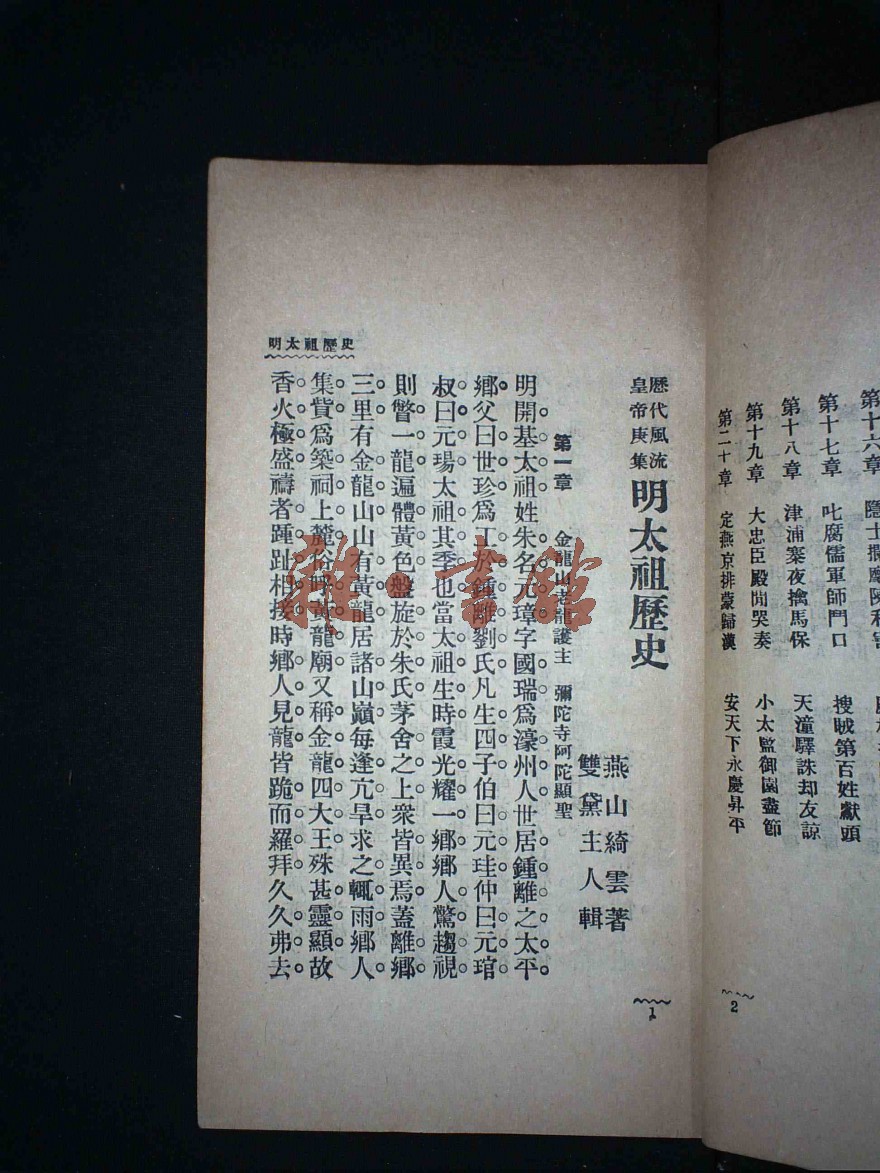 第十六章
第十七章　叱腐儒軍師鬥口　搜賊第百姓獻頭
第十八章　津浦寨夜擒馬保　天潼驛誅却友諒
第十九章　大忠臣殿閣哭奏　小太監御園盡節
第二十章　定燕京排蒙歸漢　安天下永慶昇平
2
歷代風流
皇帝庚集
明太祖歷史
燕山綺雲著
雙黛主人輯
第一章　金龍山老龍護主　彌陀寺阿陀顯聖
明開基太祖姓朱名元璋字國瑞爲濠州人世居鍾離之太平
鄉父曰世珍爲工於鍾離劉氏凡生四子伯曰元珪仲曰元琯
叔曰元瑒太祖其季也當太祖生時霞光耀一鄉鄉人驚趨視
則瞥一龍遍體黃色盤旋於朱氏茅舍之上衆皆異焉蓋離鄉
三里有金龍山山有黃龍居諸山巔每逢亢旱求之輒雨鄉人
集貲爲築祠上麓俗呼黃龍廟又稱金龍四大王殊甚靈顯故
香火極盛禱者踵趾相接時鄉人見龍皆跪而羅拜久久弗去
明太祖歷史
1
雜·書館